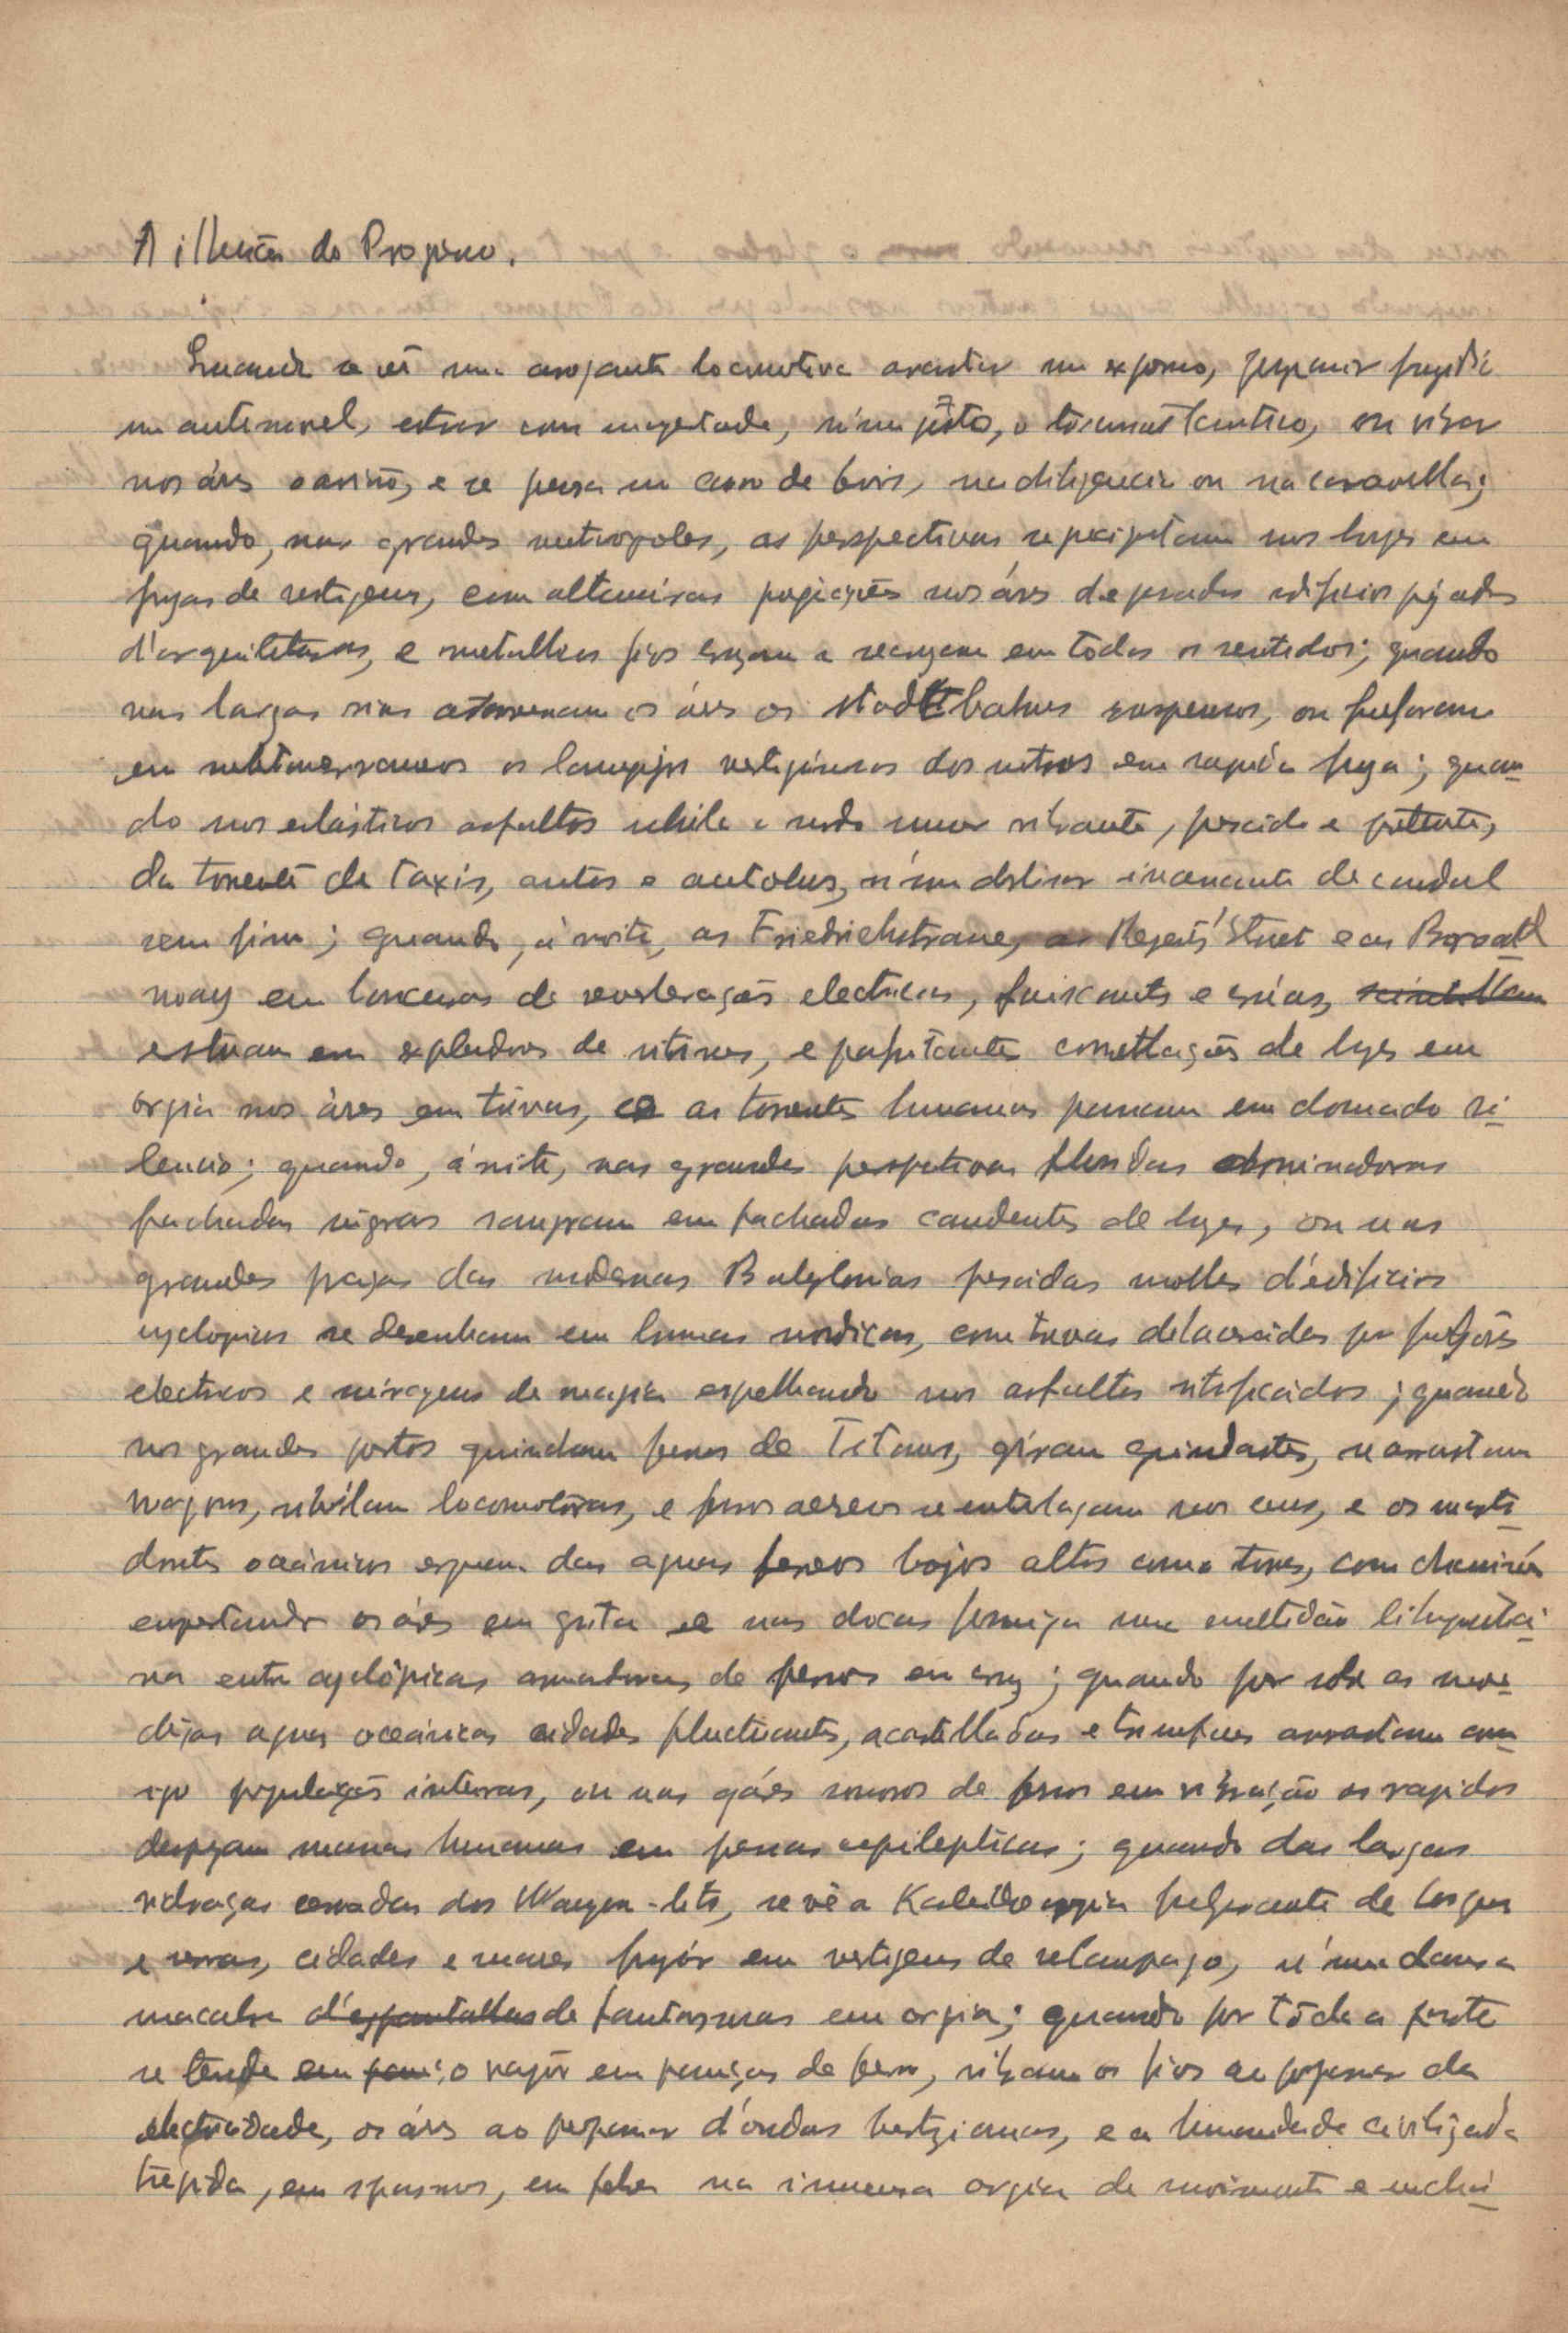 A illusão do Progresso.
Quando se vê uma arrojante locomotiva arrastar um expresso, perpassar fugidio
um automovel, entrar com magestade, n'um pôrto, o transatlantico, ou vibrar
nos áres o avião, e se pensa no carro de bois, na diligencia ou na caravella;
quando, nas grandes metropoles, as perspectivas se precipitam nos longes em
fugas de vertigens, com altaneiras projecções nos áres de pesados edificios pejados
d'arquiteturas, e metallicos fios cruzam e recruzam em todos os sentidos; quando
nas largas ruas atravessam os áres os stadtbahns suspensos, ou perfuram
em subterraneos os lampejos vertiginosos dos metros em rapida fuga; quan-
do nos elásticos asfaltos sibila o surdo rumor vibrante, pesado e
da torrente de taxis, autos e autobus, n'um deslisar incessante de caudal
sem fim; quando, á noite, as Friedrichstrasse, as Regent's Street e as Broad-
way em loucuras de reverberações electricas, faiscantes e cruas, scintillam
estuam em explendores de vitrines, e palpitantes constellações de luzes em
orgia nos áres em trévas, e as torrentes humanas passam em domado si-
lencio; quando, á noite, nas grandes perspetivas fluidas
fachadas nigras sangram em fachadas candentes de luzes, ou nas
grandes praças das modernas Babylonias pesadas molles d'edificios
cyclopicos se desenham em brumas nordicas, com trevas dilaceradas por fulgôres
electricos e miragens de magia espelhando nos asfaltos vitrificados; quando
nos grandes portos guincham ferros de Titans, giram guindastes, se arrastam
wagons, sibilam locomotoras, e ferros aereos se entrelaçam nos ceus, e os masto-
dontes oceánicos erguem das aguas ferreos bojos altos como torres, com chaminés
empestando os áres em grita e nas docas formiga uma multidão liliputia-
na entre cyclópicas armaduras de ferros em cruz; quando por sobre as move-
diças aguas oceánicas cidades fluctuantes, acastelladas e triunfaes arrastam com-
sigo populações inteiras, ou nas gáres sonoras de ferros em vibração os rapidos
despejam massas humanas em pressas epilepticas; quando das largas
vidraças cerradas dos Wagon-lits, se vê a Kaleidoscopia fulgurante de longes
e serras, cidades e mares fugir em vertigens de relampago, n'uma dansa
macabra d'espantalhos de fantasmas em orgia; quando por tôda a parte
se tende o vapôr em de ferro, vibram os fios ao perpassar da
electricidade, os áres ao perpassar d'ondas hertzianas, e a humanidade civilizada
trepida, em spasmos, em febre na immensa orgia de movimento e machi-